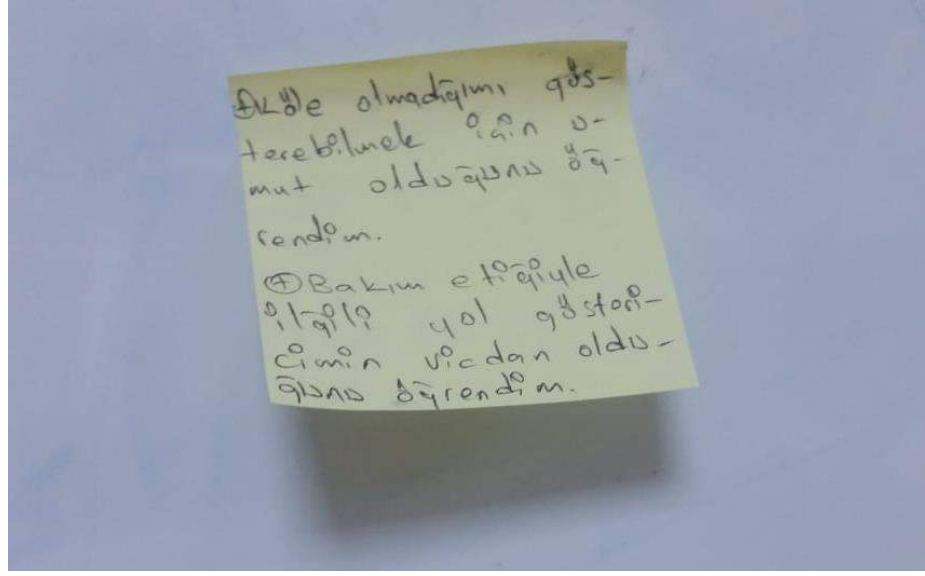 ⊕Köle olmadığımı gös-
terebilmek için u-
mut olduğunu öğ-
rendim.
⊕Bakım etiğiyle
ilgili yol gösteri-
cimin vicdan oldu-
ğunu öğrendim.